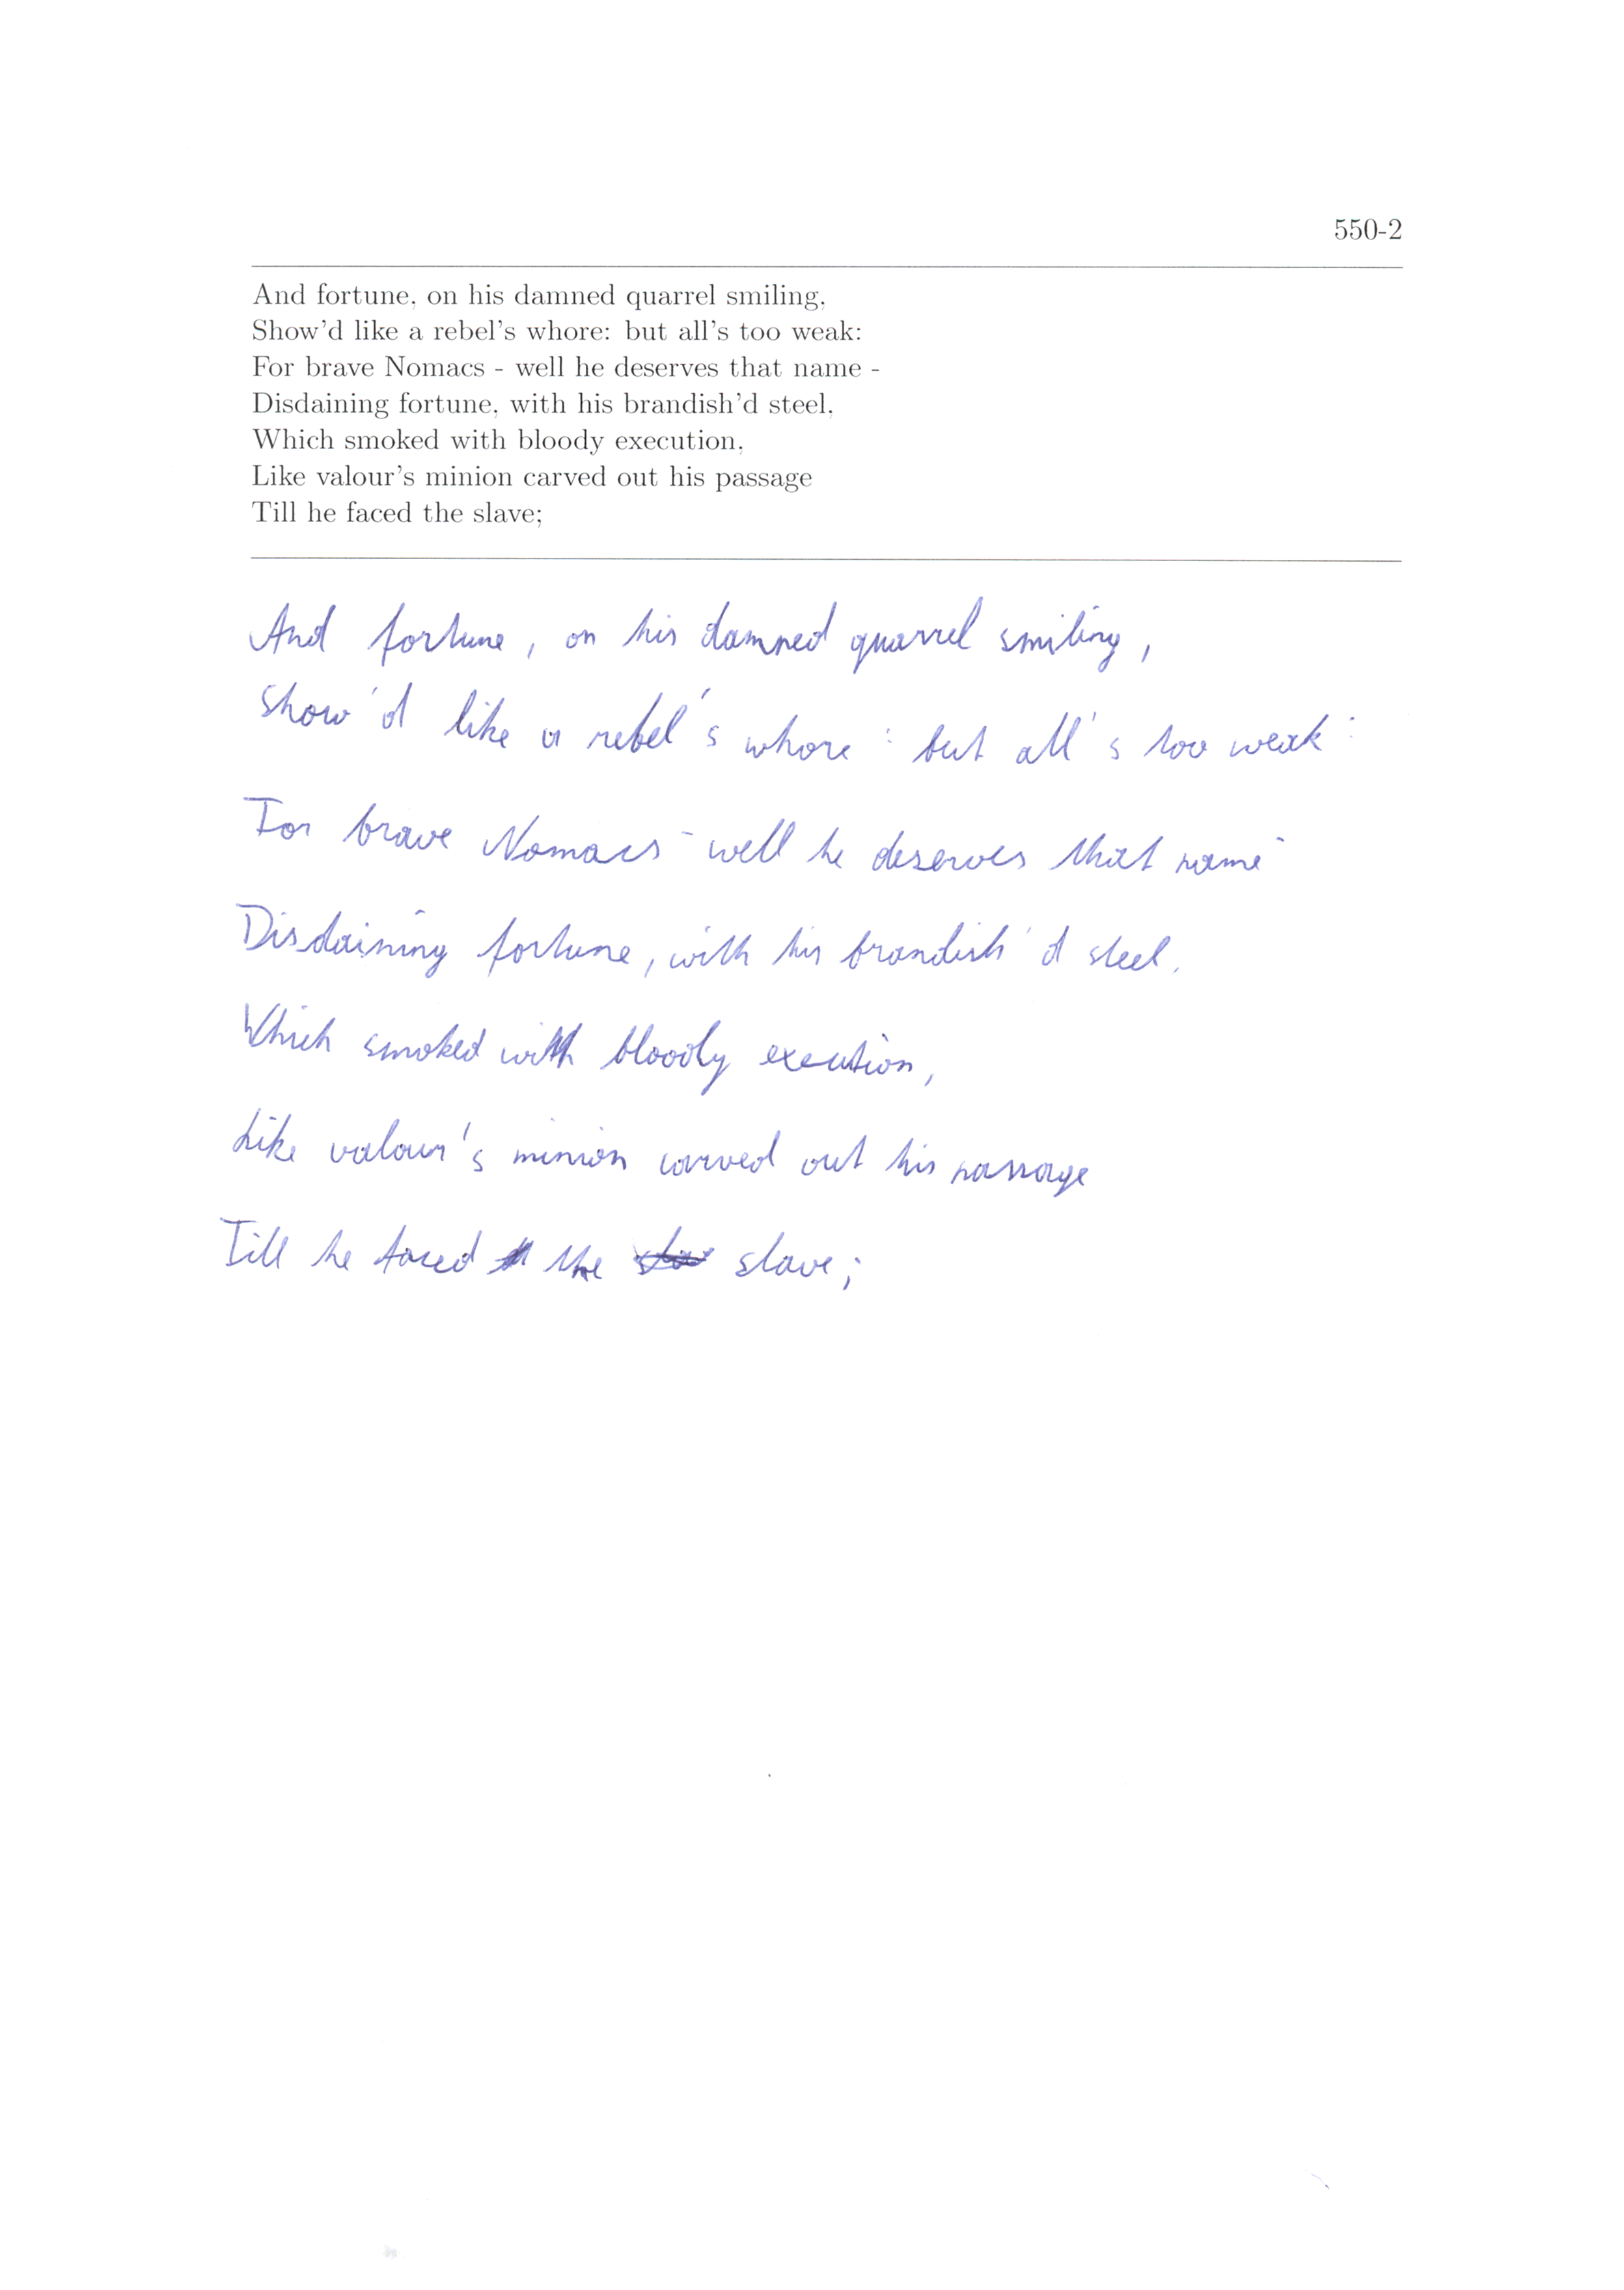 550-2
And fortune, on his damned quarrel smiling,
Show'd like a rebel's whore: but all's too weak:
For brave Nomacs - well he deserves that name -
Disdaining fortune, with his brandish'd steel,
Which smoked with bloody execution,
Like valour's minion carved out his passage
Till he faced the slave;
And fortune, on his damned quarrel smiling,
Show'd like a rebel's whore: but all's too weak:
For brave Nomacs - well he deserves that name -
Disdaining fortune, with his brandish'd steel,
Which smoked with bloody execution,
Like valour's minion carved out his passage
Till he faced the slave;